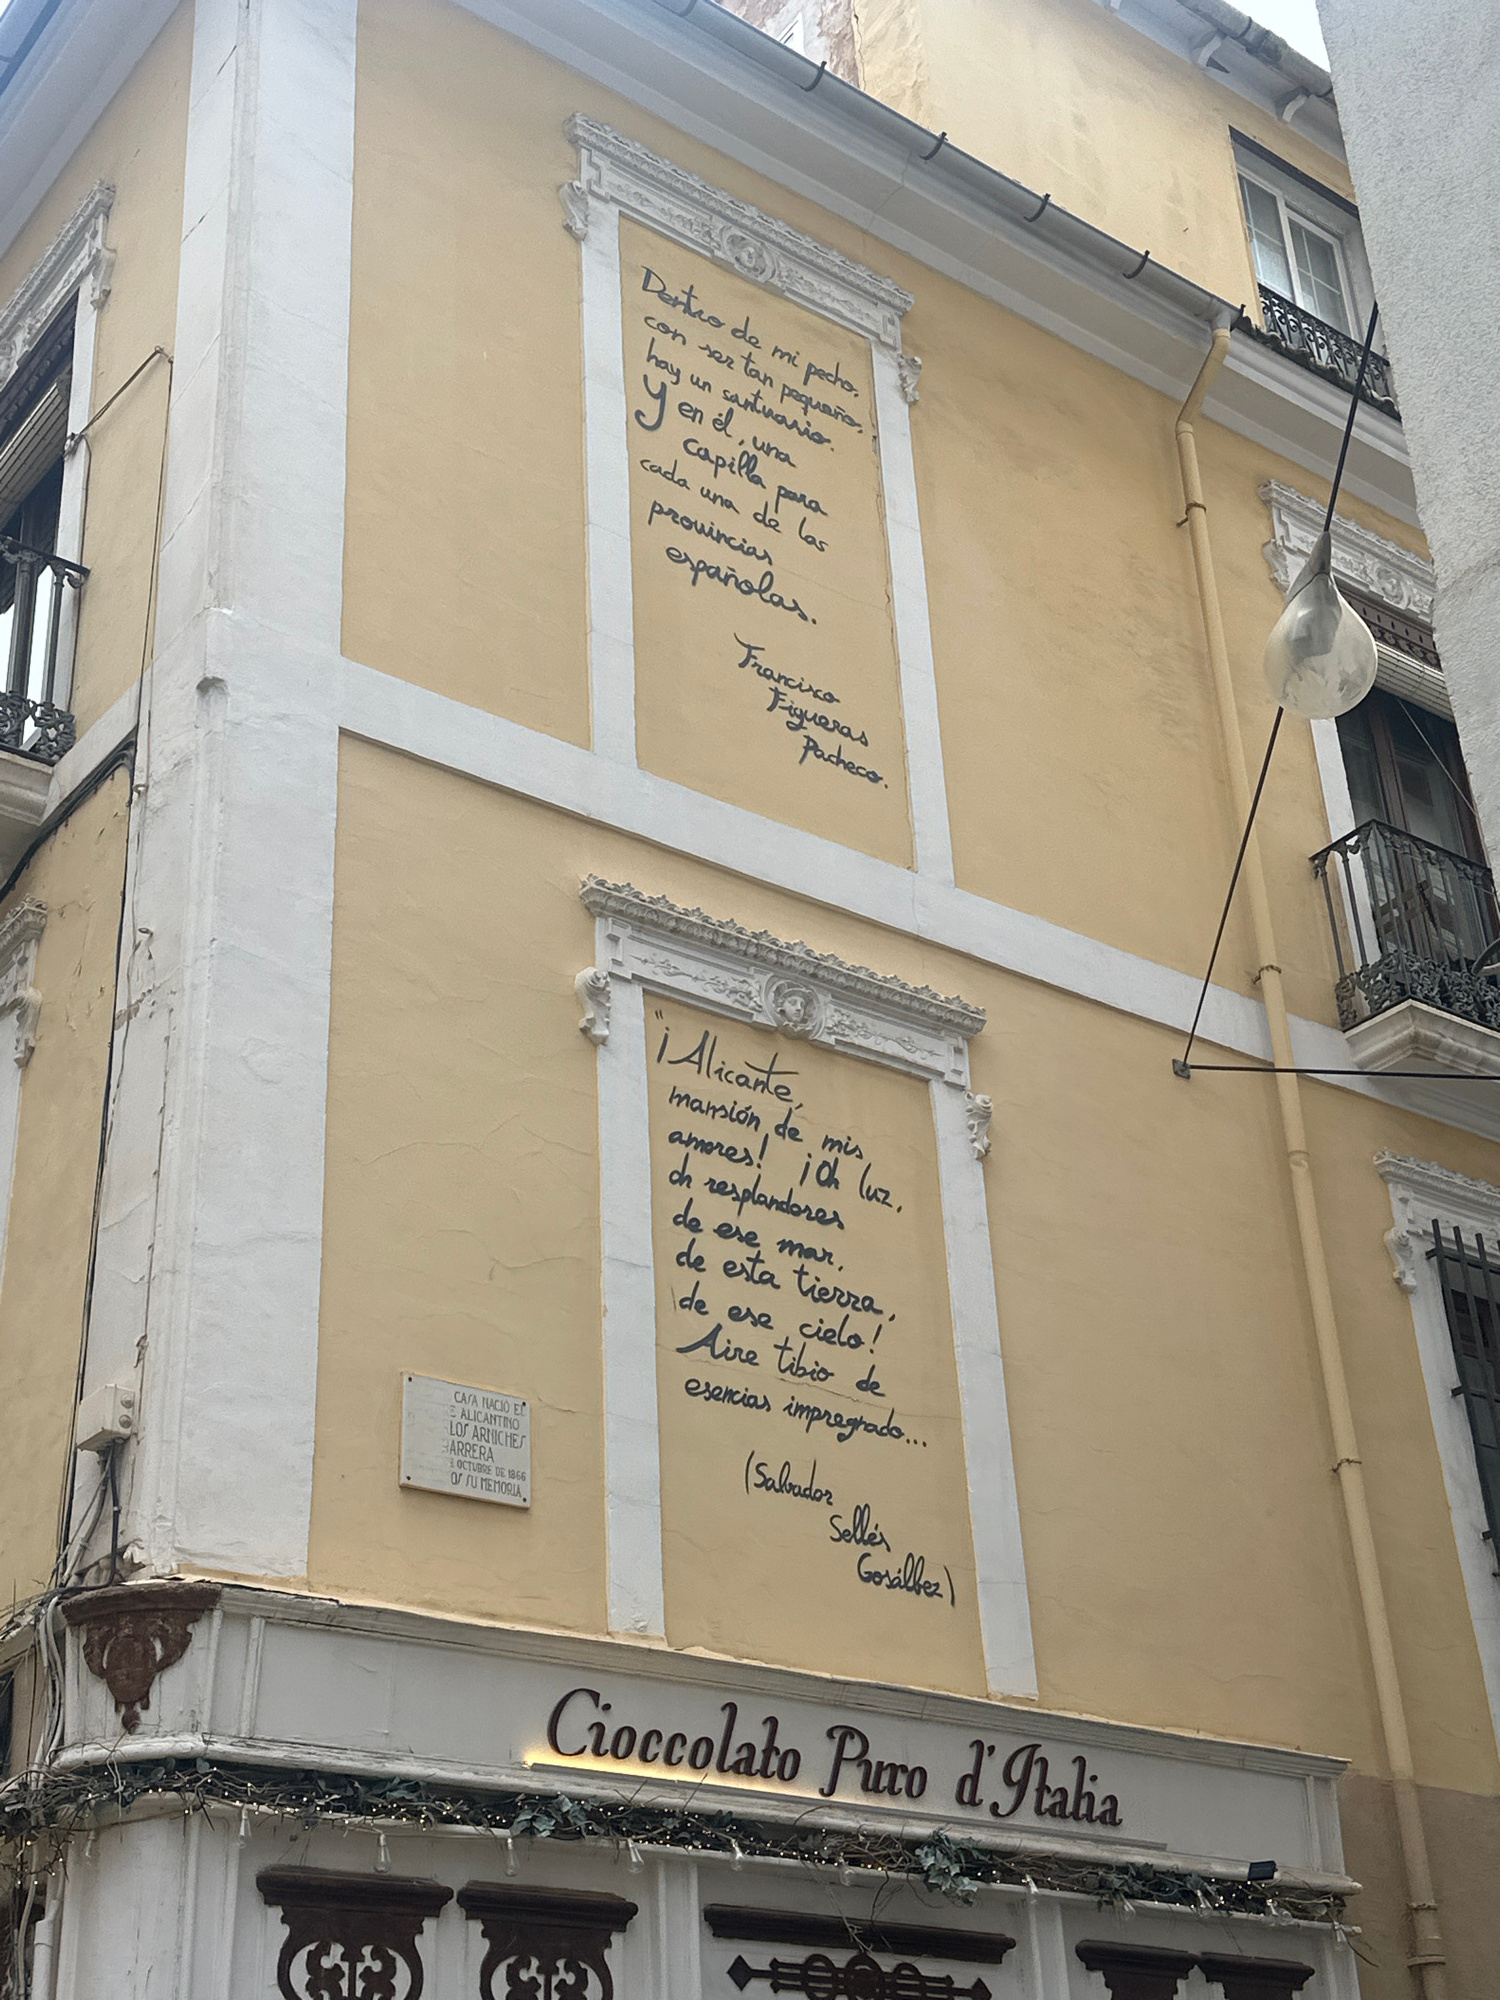 Dentro de mi pecho,
con ser tan pequeño,
hay un santuario.
Y en él, una
capilla para
cada una de las
provincias
españolas.
Francisco
Figueras
Pacheco.
"¡Alicante,
mansión de mis
amores! ¡Oh luz,
oh resplandores
de ese mar,
de esta tierra,
de ese cielo!
Aire tibio de
esencias impregnado...
(Salvador
Sellés
Gosálbez)
CASA NACIÓ EL
E ALICANTINO
LOS ARNICHES
ARRERA
OCTUBRE DE 1866
OS SU MEMORIA
Cioccolato Puro d'Italia